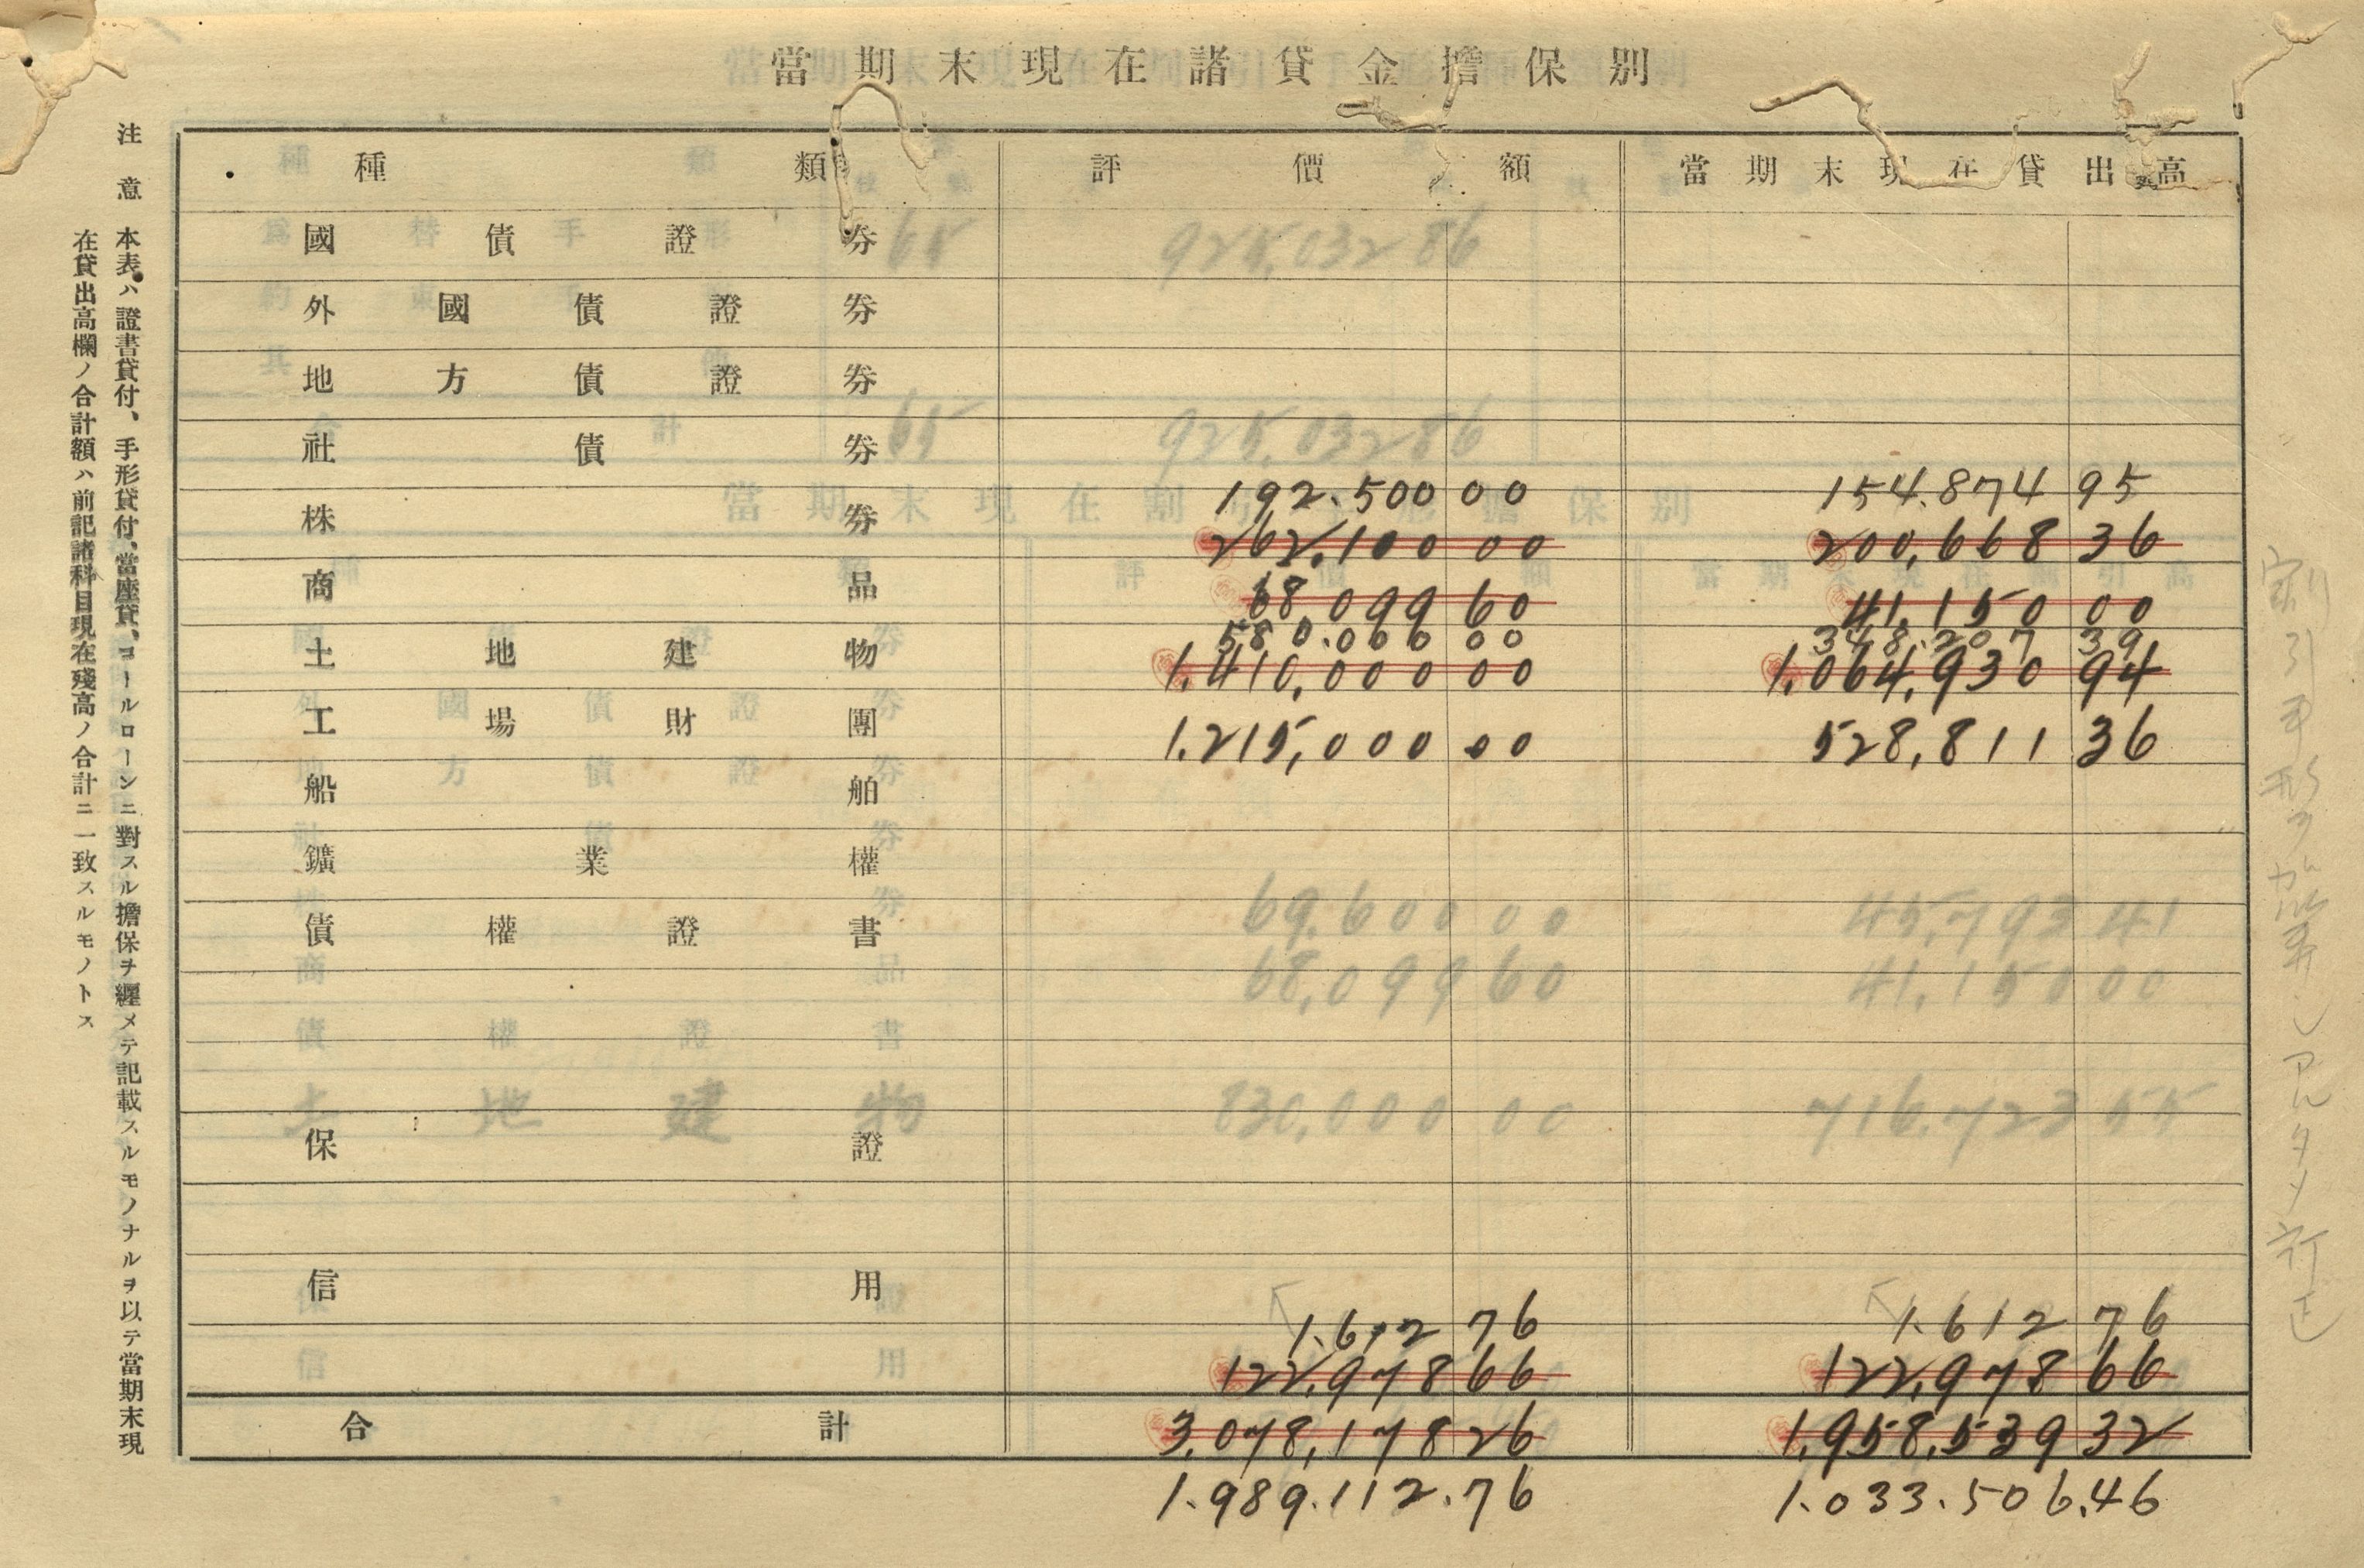 當期末現在諸貸金擔保別
種類 評價額 當期末現在貸出高
國債證券
外國債證券
地方債證券
社債券
192.500 00 154.874 95
株券 262,100 00 200,668 36
商品 68,099 60 41,150 00
580.000 00 348.207 39
土地建物 1,410,000 00 1,064,930 94
工場財團 1.215,000 00 528,811 36
船舶
鑛業權
債權證書
保證
信用
1.612 76 1.612 76
122,978 66 122,978 66
合計 3,078,178 26 1,958,539 32
1.989.112.76 1.033.506.46
注意
本表ハ證書貸付、手形貸付、當座貸、コールローンニ對スル擔保ヲ纒メテ記載スルモノナルヲ以テ當期末現
在貸出高欄ノ合計額ハ前記諸科目現在殘高ノ合計ニ一致スルモノトス
割引手形ヲ加算シアルタメ訂正